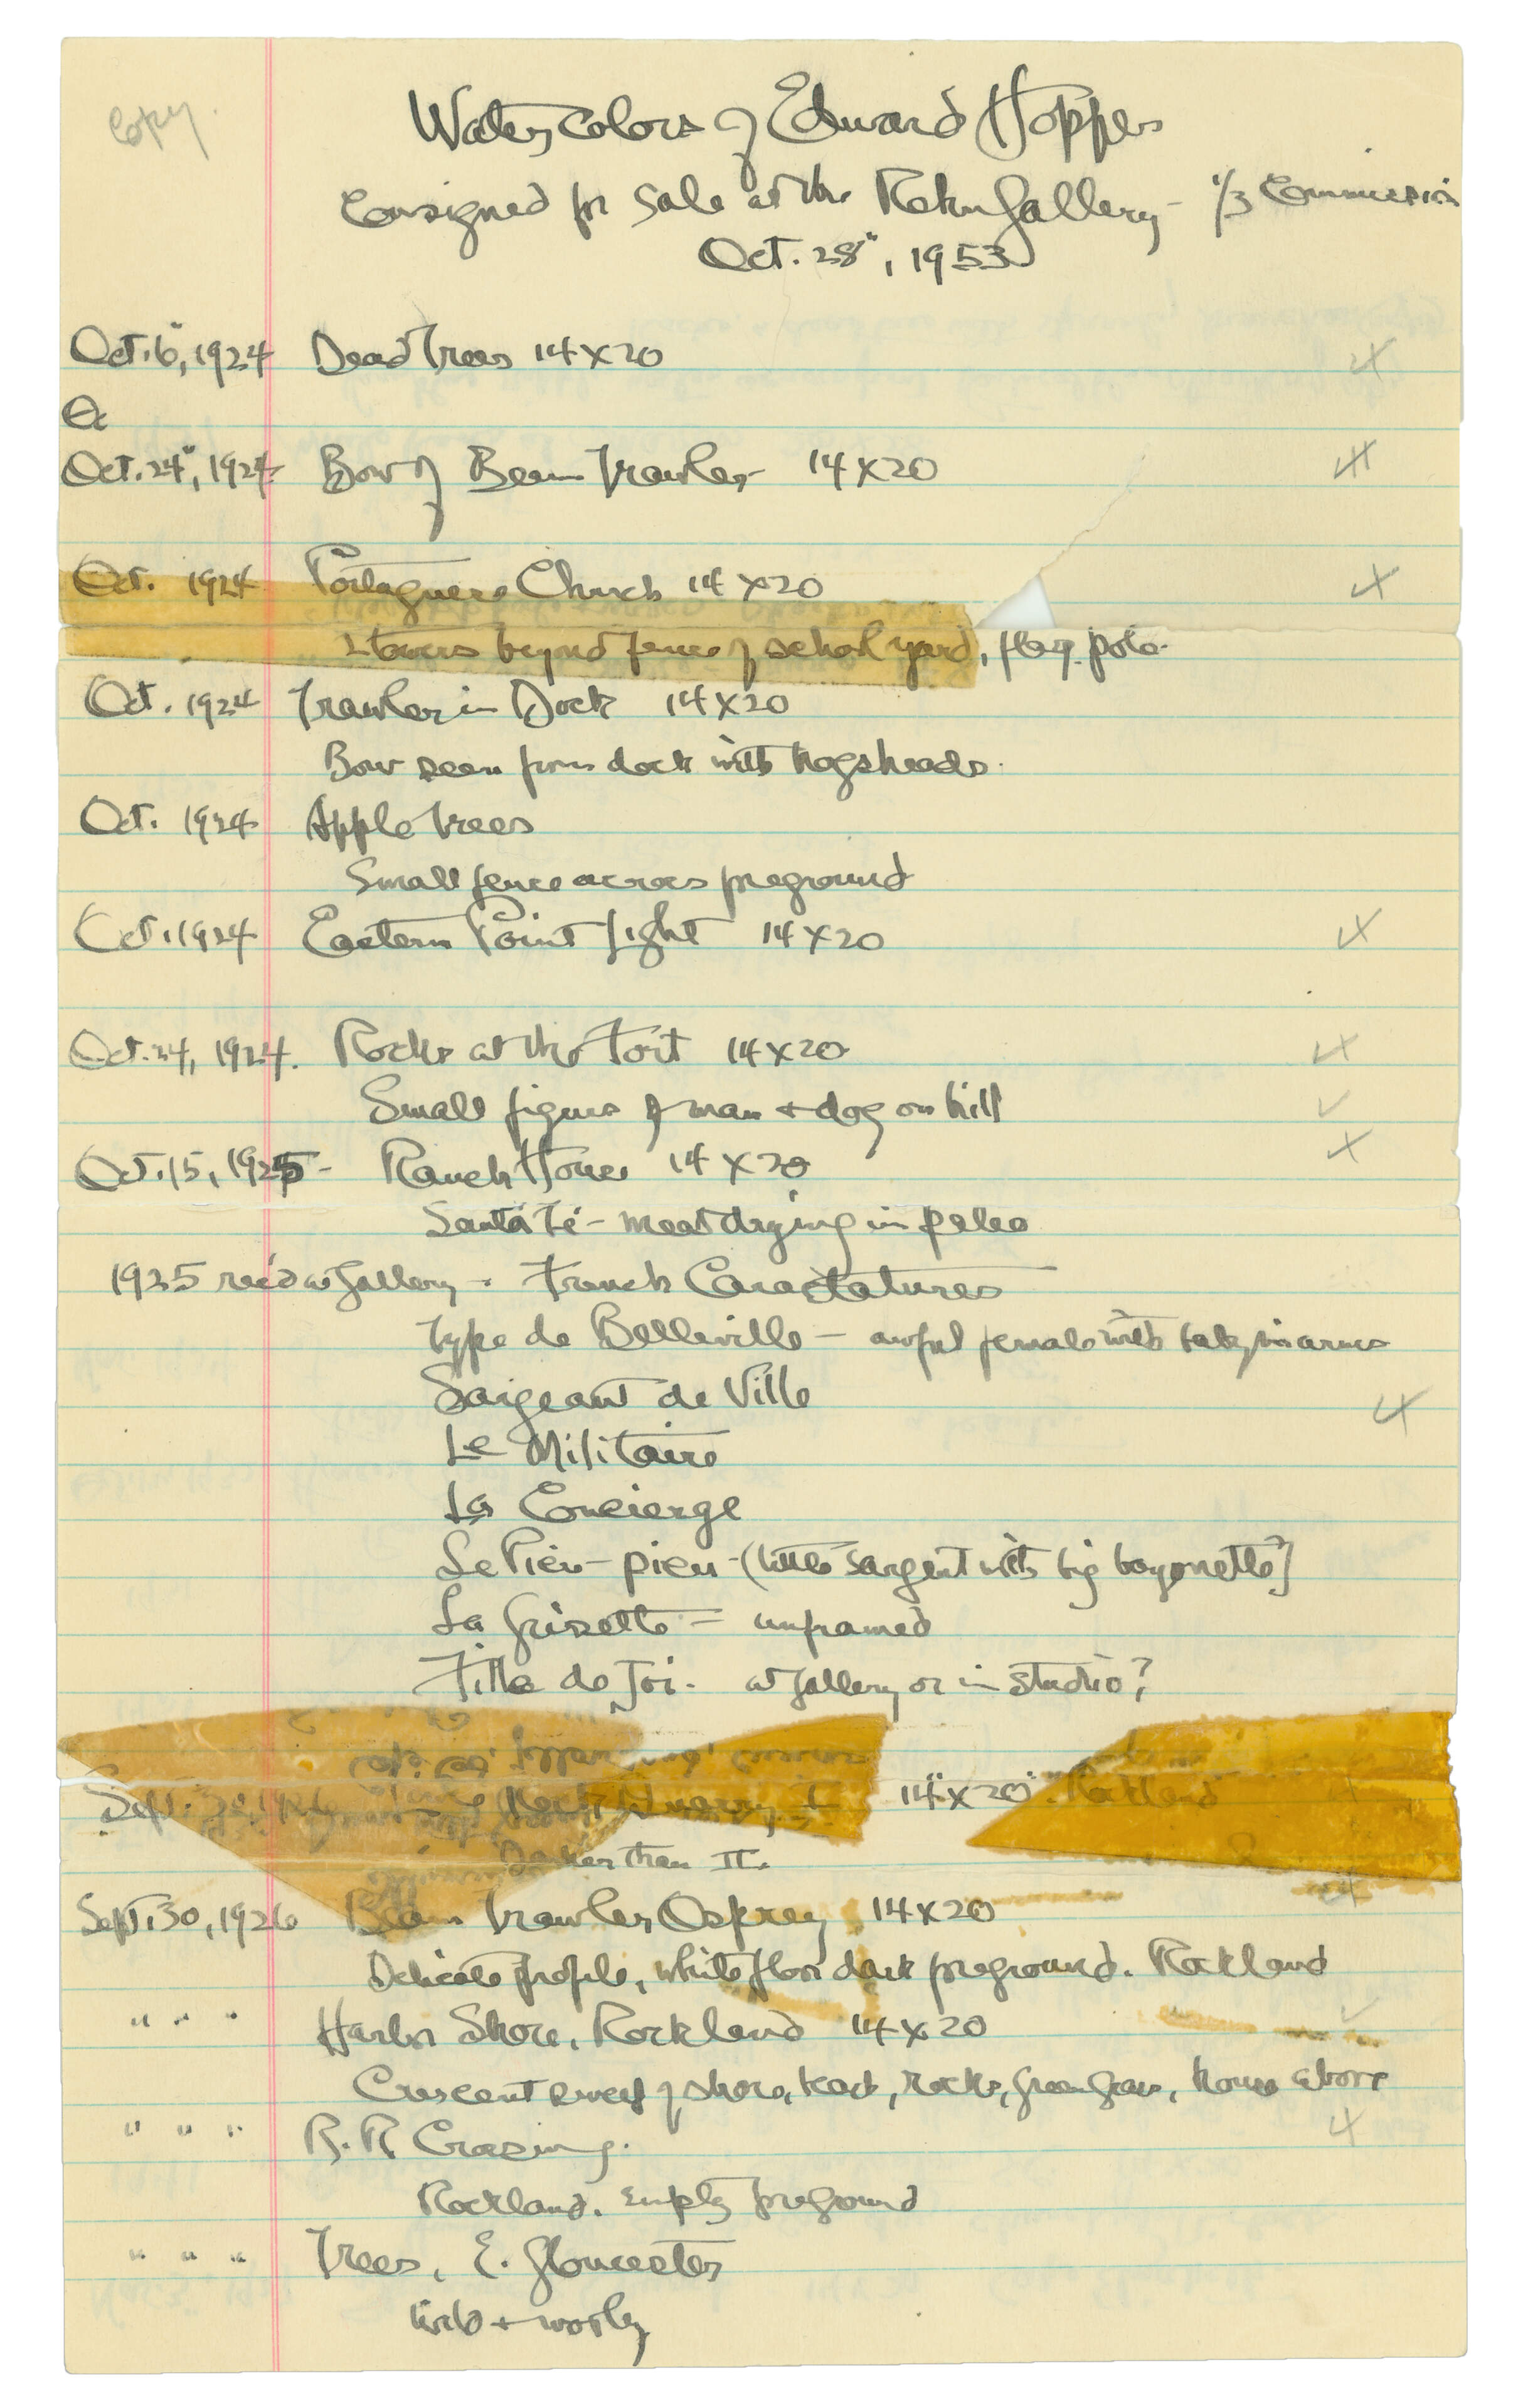 Copy.
Water Colors of Edward Hopper
Consigned for Sale at the Rehn Gallery - 1/3 Commission
Oct. 28", 1953
Oct. 6", 1924 Dead Trees 14 x 20
Oc
Oct. 24", 1924 Bow of Beam Trawler 14 x 20
Oct. 1924 Portaguese Church 14 x 20
2 towers beyond fence of school yard, flag pole.
Oct. 1924 Trawler in Dock 14 x 20
Bow seen from dock with hogsheads.
Oct. 1924 Apple Trees
Small fence across foreground
Oct. 1924 Eastern Point Light 14 x 20
Oct. 24, 1924. Rocks at the Fort 14 x 20
Small figures of man + dog on hill
Oct. 15, 1925 - Ranch House 14 x 20
Santa Fé - meat drying in
1925 rec'd at Gallery - French Caractatures
Type de Belleville - awful female with baby in arms
Saigeant de Ville
Le Militaire
La Concierge
Le Pieu-pieu - (little sargent with big bayonette)
La Grisette = unframed
Fille de Joi. at Gallery or in studio?
Sept. Lime Rock Quarry I 14" x 20" Rockland
Darker than II.
Sept. 30, 1926 Beam Trawler Osprey 14 x 20
Delicate profile, white floor dark foreground. Rockland
" " " Harbor Shore, Rockland 14 x 20
Crescent sweep of shore, beach, rocks, green grass, house above
" " " R. R. Crossing.
Rockland. Empty foreground
" " " Trees, E. Gloucester